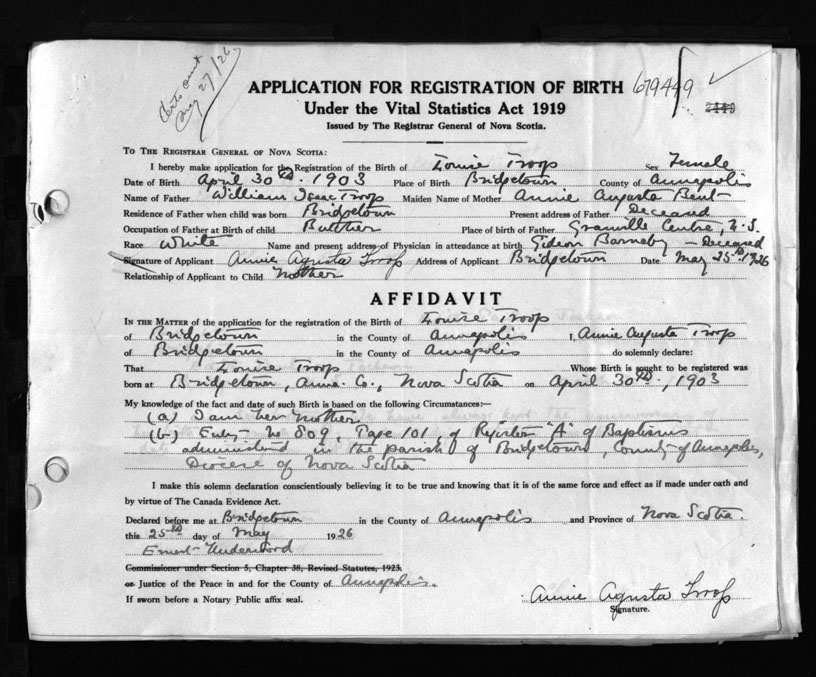 May 27/26
APPLICATION FOR REGISTRATION OF BIRTH 679449
Under the Vital Statistics Act 1919
Issued by The Registrar General of Nova Scotia.
TO THE REGISTRAR GENERAL OF NOVA SCOTIA:
I hereby make application for the Registration of the Birth of Louise Troop Sex Female
Date of Birth April 30th. 1903 Place of Birth Bridgetown County of Annapolis
Name of Father William Isaac Troop Maiden Name of Mother Annie Augusta Bent
Residence of Father when child was born Bridgetown Present address of Father Deceased
Occupation of Father at Birth of child Butcher Place of birth of Father Granville Centre, N.S.
Race White Name and present address of Physician in attendance at birth Gideon Barnaby - Deceased
Signature of Applicant Annie Agusta Troop Address of Applicant Bridgetown Date May 25th 1926
Relationship of Applicant to Child Mother
AFFIDAVIT
IN THE MATTER of the application for the registration of the Birth of Louise Troop
of Bridgetown in the County of Annapolis I, Annie Augusta Troop
of Bridgetown in the County of Annapolis do solemnly declare:
That Louise Troop Whose Birth is sought to be registered was
born at Bridgetown, Anna. Co., Nova Scotia on April 30th, 1903
My knowledge of the fact and date of such Birth is based on the following Circumstances:—
(a) I am her Mother
(b) Entry No 809, Page 101, of Register "A" of Baptisms
administered in the parish of Bridgetown, County of Annapolis,
Diocese of Nova Scotia
I make this solemn declaration conscientiously believing it to be true and knowing that it is of the same force and effect as if made under oath and
by virtue of The Canada Evidence Act.
Declared before me at Bridgetown in the County of Annapolis and Province of Nova Scotia.
this 25th day of May 1926
Ernest Underwood
Commissioner under Section 5, Chapter 38, Revised Statutes, 1923.
or Justice of the Peace in and for the County of Annapolis.
If sworn before a Notary Public affix seal.
Annie Agusta Troop
Signature.